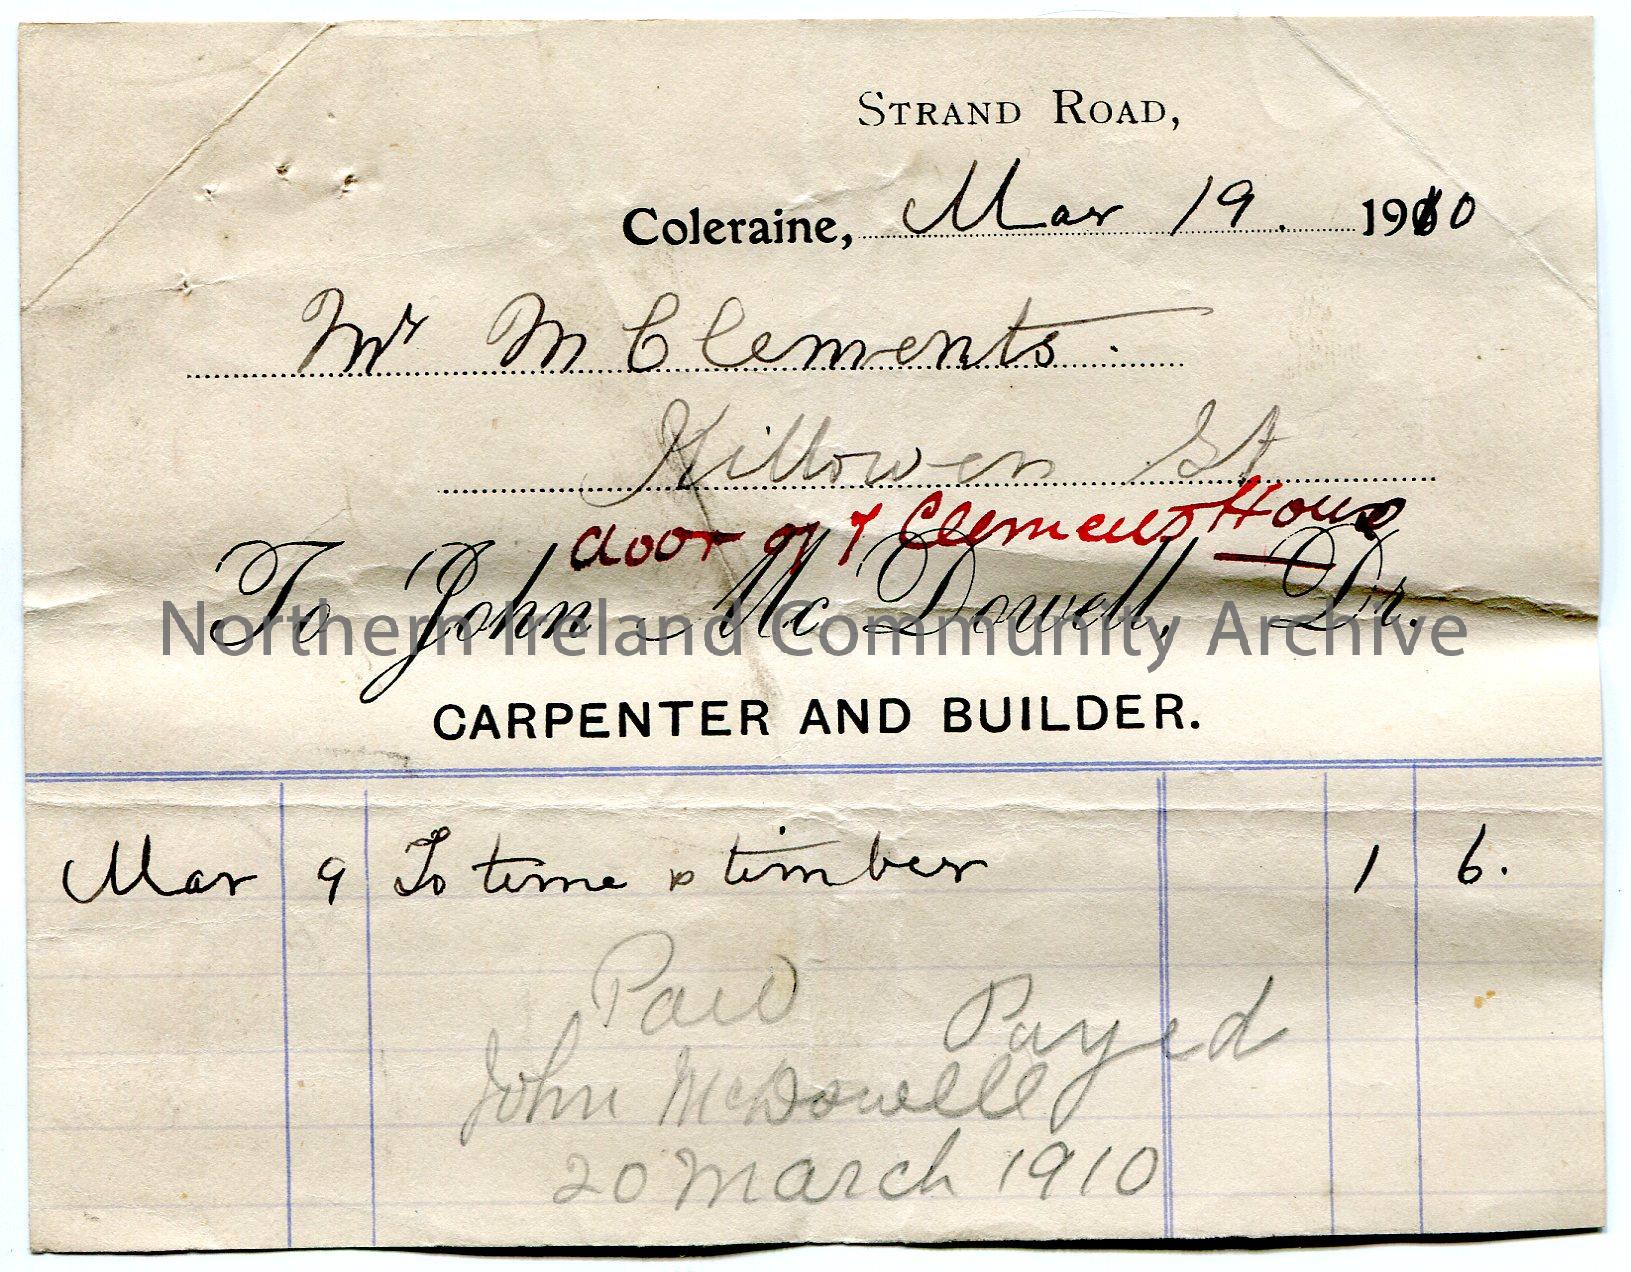 STRAND ROAD,
Coleraine, Mar 19. 1910
Mr M Clements.
Killowen St
door of T Clements House
To John McDowell, Dr.
Northern Ireland Community Archive
CARPENTER AND BUILDER.
Mar 9 To time & timber 1 6.
Paid
Payed
John McDowell
20 March 1910